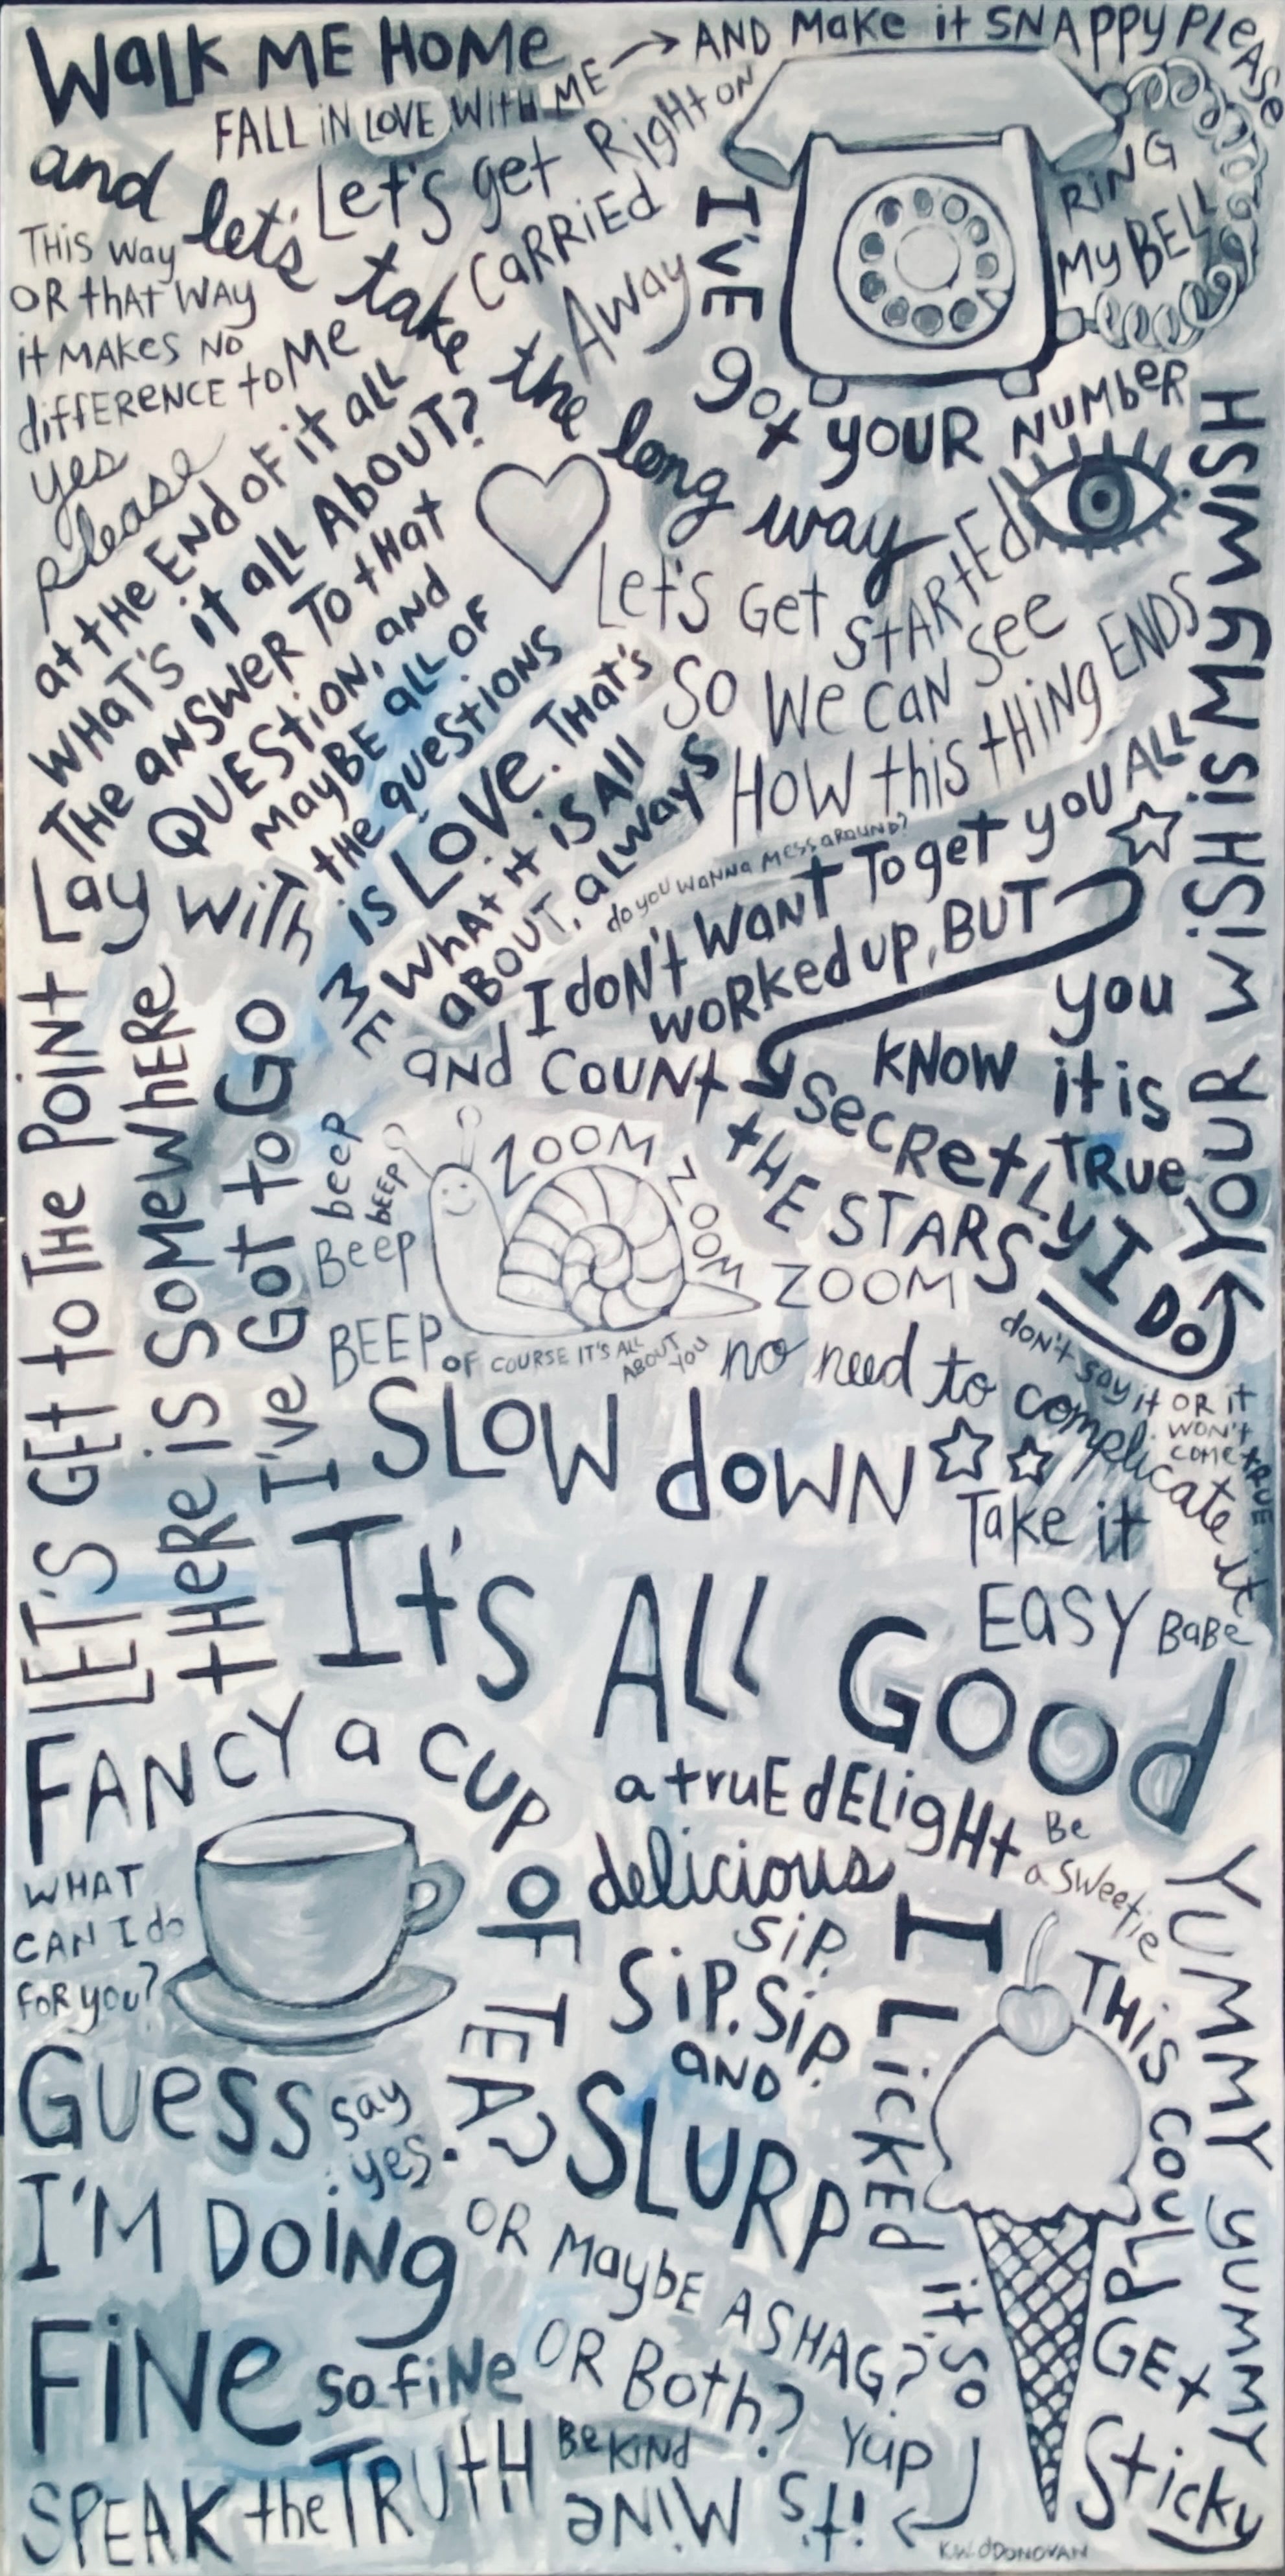 WALK ME HOME
AND MAKE it SNAPPY PLEASE
FALL iN LOVE WITH ME
and let's take the long way
Let's get Right on
CARRiED
Away
RiNG
My BELL
I'VE got YOUR NUMBER
THIS way
OR tHAT WAY
it MAKES NO
diffERENCE to Me
yes
please
at tHE END OF it aLL
WHaT'S iT aLL AboUT?
THE aNSWER To tHat
QUEStiON, and
MayBE aLL OF
tHE QUEStiONS
is LOVE. THAT'S
WhAt it iS All
aBOUT, aLWays
Let's Get StARtEd
So We CaN See
How this tHiNg ENDS
YOUR WiSH iS My WiSH
do you waNNa MESS aROUND?
I doN't WaNt To get you ALL
WORKed up, BUT
secRetLy I DO
you
KNOW it is
TRue
Lay with ME
and COUNt
tHE STARS
LET'S GEt to THE POiNT
tHeRe iS SOMeWhERe
I've Got to GO
beep
BEEP
Beep
BEEP
ZOOM
ZOOM
ZOOM
OF COURSE IT'S ALL
ABOUT YOU
no need to complicate it
doN't say it OR it
WON't
COME tRUE
SLOW doWN
Take it
EaSY BaBe
It's ALL GOOd
FANCY a CUP OF TEA?
WHAT
CAN I do
FOR you?
a truE dELigHt
delicious
Be
a sweetie
SiP.
SiP. SiP.
aND
SLURP
Guess
say
yes.
I'M DOiNg
FiNe so fiNe
OR MaybE A SHAG?
OR Both?
Yup
I LicKEd it so
it's MiNe
THiS COULd GEt Sticky
YUMMY yUMMY
BE KiNd
SPEAK the TRUtH
K.W. O'DONOVAN